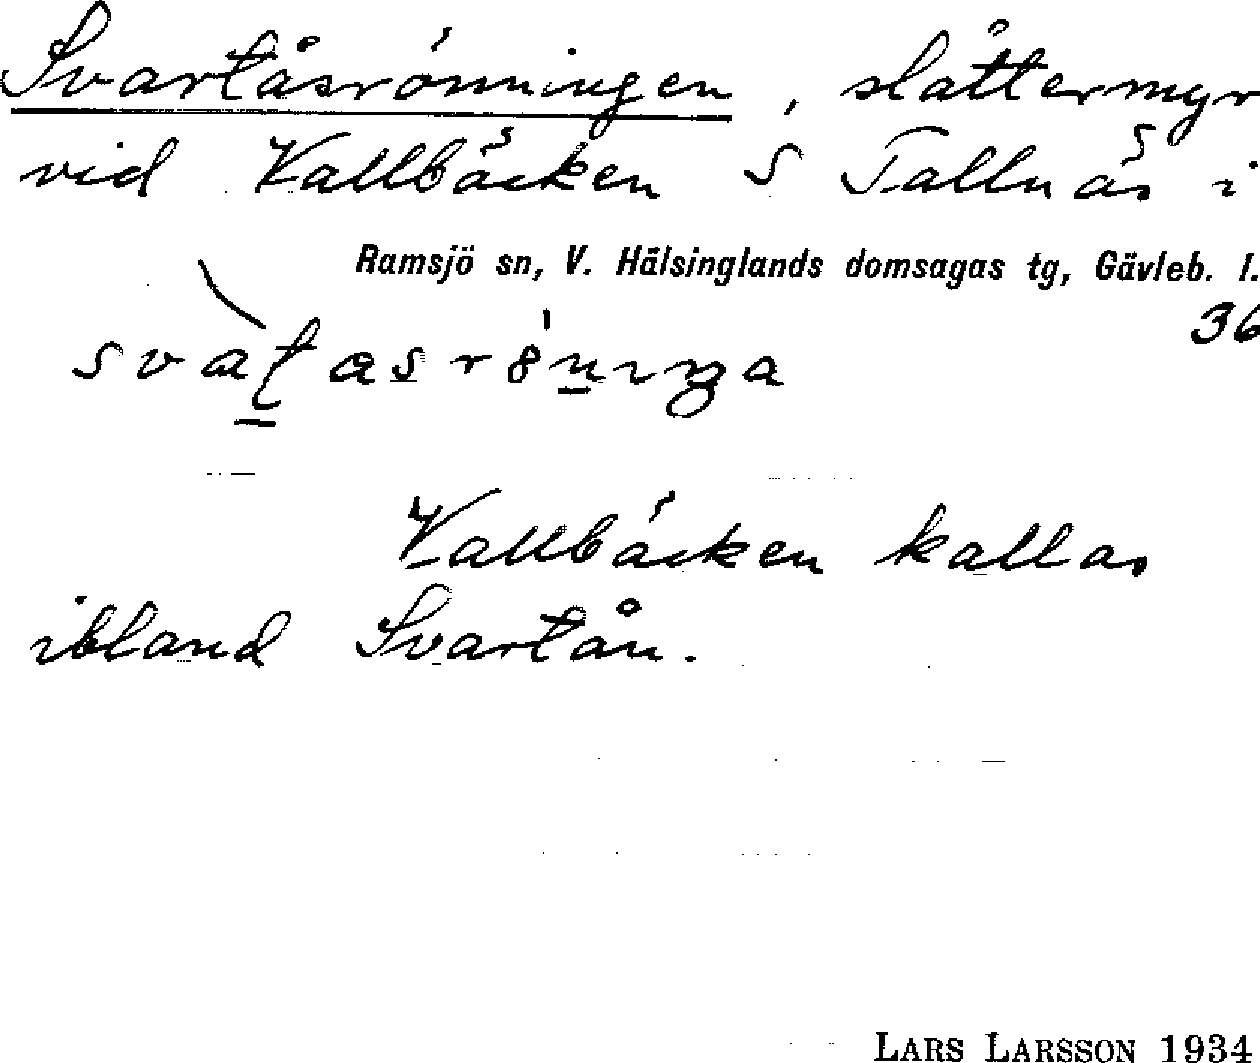 Svartåsrönningen, slåttermyr
vid Vallbäcken S Tallnäs i
Ramsjö sn, V. Hälsinglands domsagas tg, Gävleb. l.
36
Vallbäcken kallas
ibland Svartån.
LARS LARSSON 1934